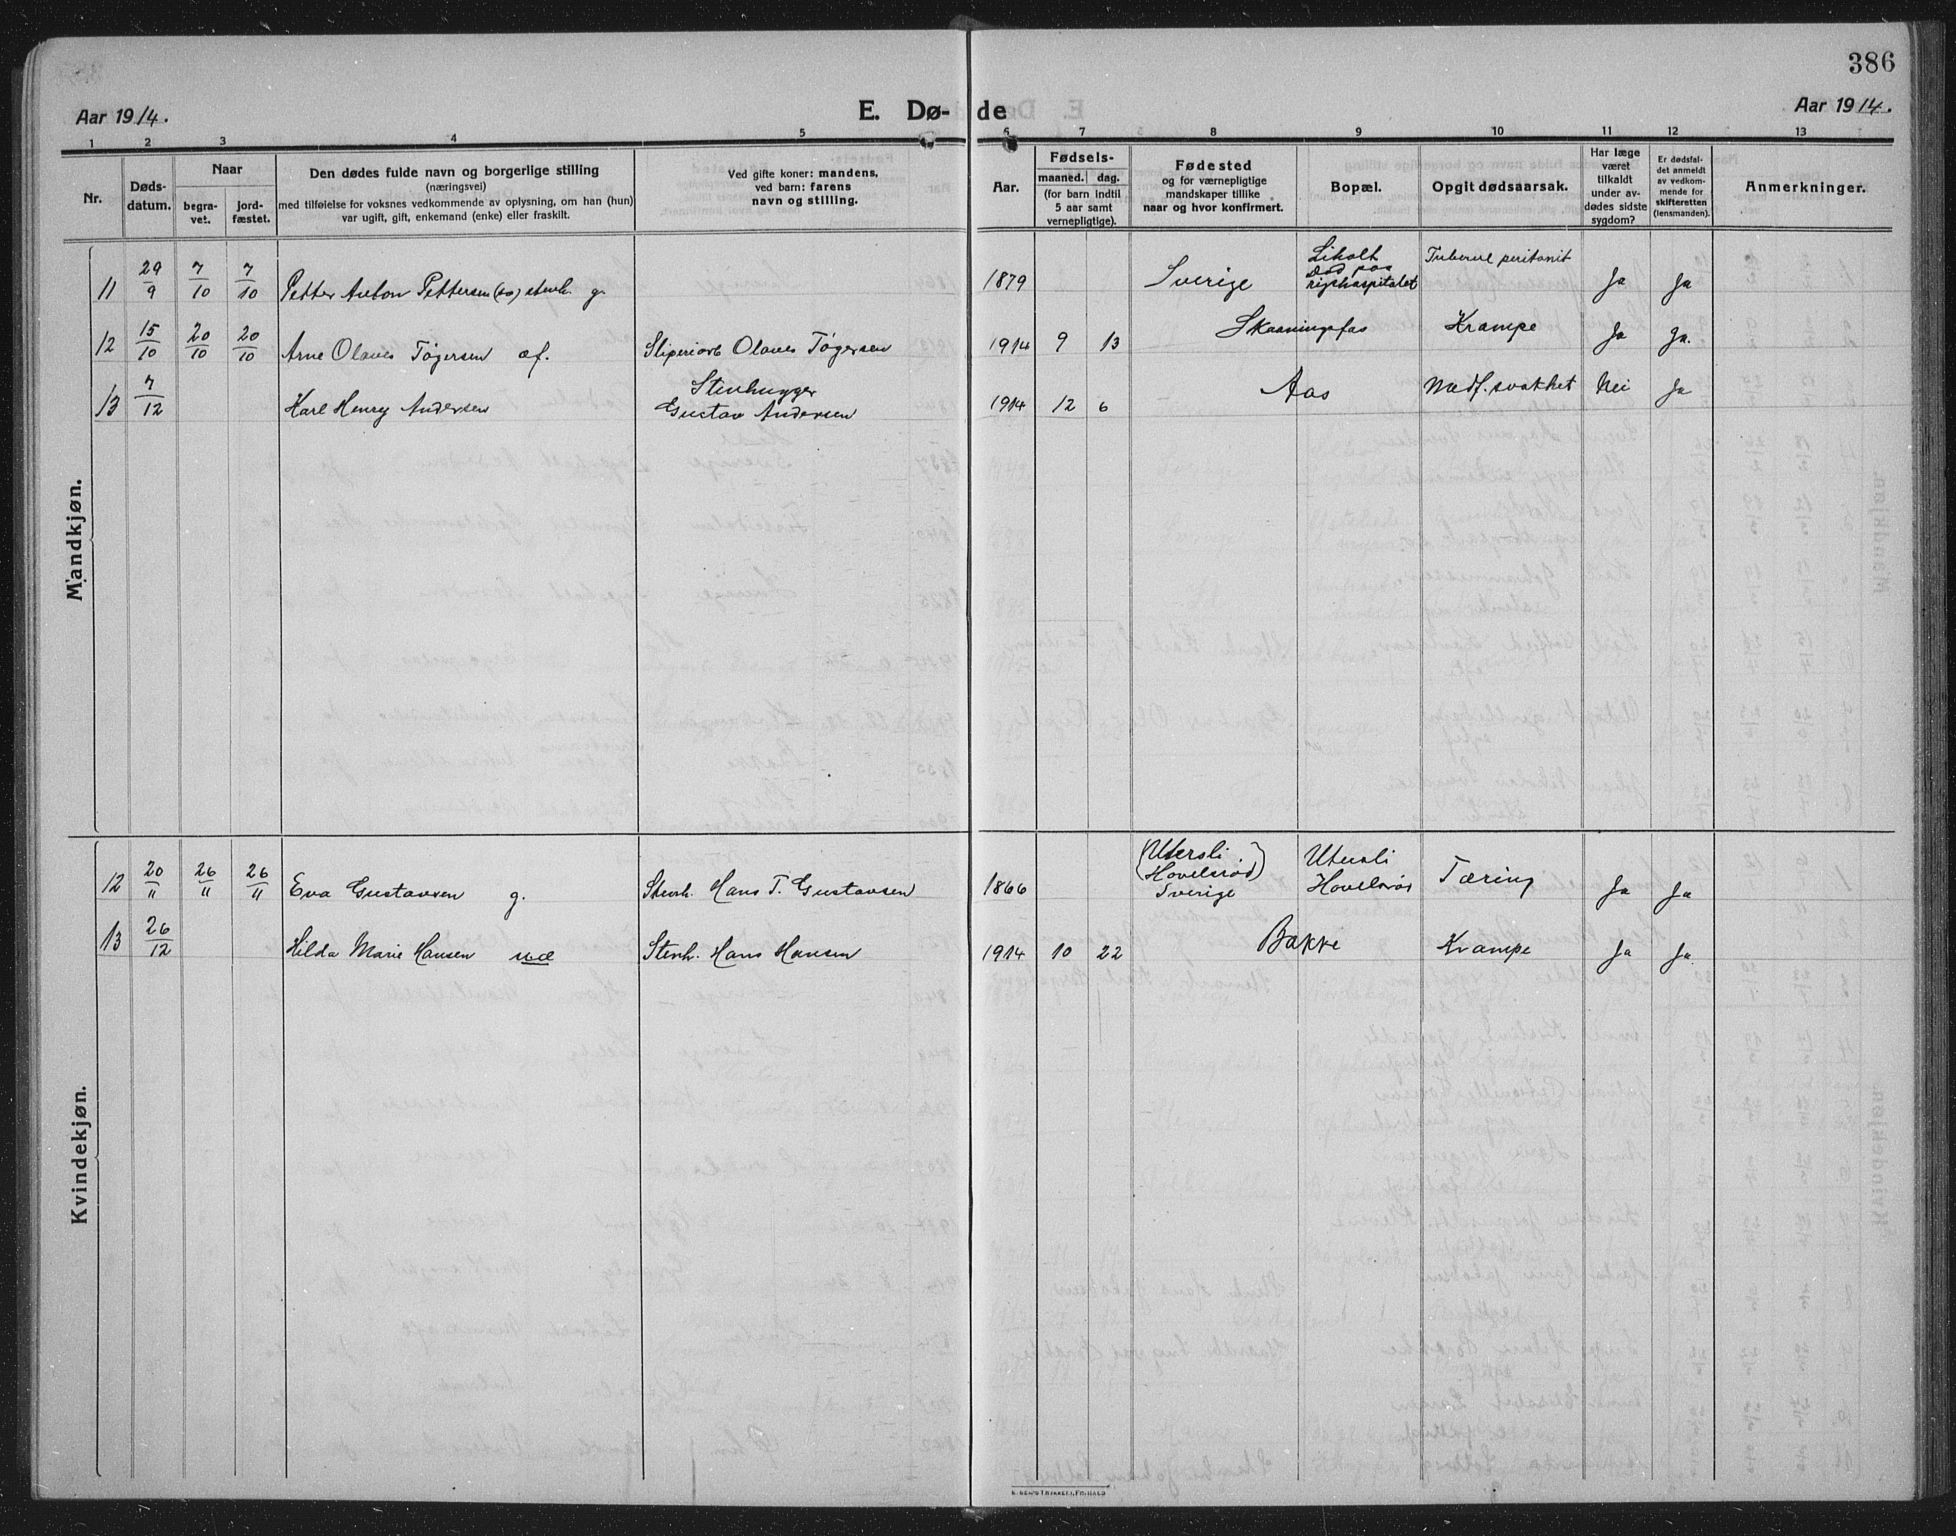 386
Aar 1914. E. Dø- de Aar 1914.
1 2 3 4 5 6 7 8 9 10 11 12 13
Nr.
Døds-
datum.
Naar
begra-
vet.
jord-
fæstet.
Den dødes fulde navn og borgerlige stilling
(næringsvei)
med tilføielse for voksnes vedkommende av oplysning, om han (hun)
var ugift, gift, enkemand (enke) eller fraskilt.
Ved gifte koner: mandens,
ved barn: farens
navn og stilling.
Aar.
Fødsels-
maaned. dag.
(for barn indtil
5 aar samt
vernepligtige).
Fødested
og for værnepligtige
mandskaper tillike
naar og hvor konfirmert.
Bopæl.
Opgit dødsaarsak.
Har læge
været
tilkaldt
under av-
dødes sidste
sygdom?
Er dødsfal-
det anmeldt
av vedkom-
mende for
skifteretten
(lensmanden).
Anmerkninger.
Mandkjøn.
11 29/9 7/10 7/10 Petter Anton Pettersen stenh. g. 1879 Sverige Liholt Død paa rigshospitalet Tubercul peritonit Ja Ja
12 15/10 20/10 20/10 Arne Olaves Tøgersen æf. Sliperiarb Olaves Tøgersen 1914 9 13 Skaaningsfos Krampe Ja Ja.
13 7/12 Karl Henry Andersen Stenhugger Gustav Andersen 1914 12 6 Aas Medf. svakhet Nei Ja
Kvindekjøn.
12 20/11 26/11 26/11 Eva Gustavsen g. Stenh. Hans T. Gustavsen 1866 (Utersli Hovelsrød) Sverige Utersli Hovelsrød Tæring Ja Ja
13 26/12 Hilda Marie Hansen uæ Stenh. Hans Hansen 1914 10 22 Bakke Krampe Ja Ja.